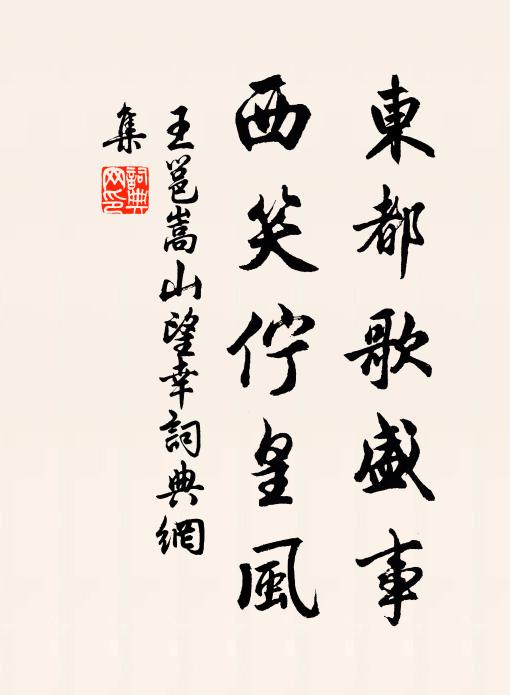 東都歌盛事
西笑佇皇風
王邕嵩山望幸詞典網
集
詞典
网印